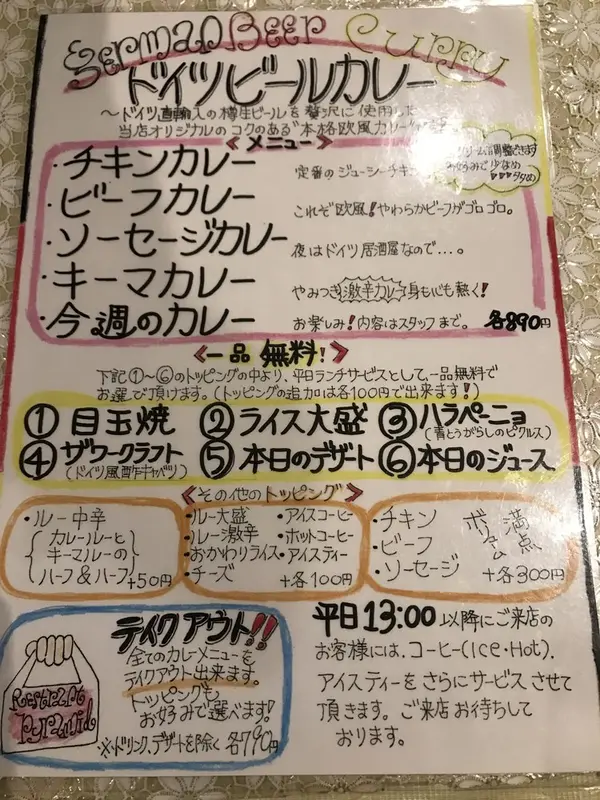 German Beer Curry
ドイツビールカレー
～ドイツ直輸入の樽生ビールを贅沢に使用した
当店オリジナルのコクのある"本格欧風カレー
＜メニュー＞
調整できます
お好みで少なめ
・チキンカレー 定番のジューシーチキン
・ビーフカレー これぞ欧風!やわらかビーフがゴロゴロ。
・ソーセージカレー 夜はドイツ居酒屋なので…。
・キーマカレー やみつき激辛カレー身も心も熱く!
・今週のカレー お楽しみ!内容はスタッフまで。 各890円
＜一品 無料!＞
下記①～⑥のトッピングの中より、平日ランチサービスとして、一品無料で
お選び頂けます。(トッピングの追加は各100円で出来ます!)
①目玉焼 ②ライス大盛 ③ハラペーニョ
(青とうがらしのピクルス)
④ザワークラフト ⑤本日のデザート ⑥本日のジュース
(ドイツ風酢キャベツ)
＜その他のトッピング＞
・ルー中辛
カレールーと
キーマルーの
ハーフ&ハーフ +50円
・ルー大盛 ・アイスコーヒー
・ルー激辛 ・ホットコーヒー
・おかわりライス ・アイスティー
・チーズ +各100円
・チキン
・ビーフ
・ソーセージ
ボリューム満点
+各300円
テイクアウト!!
全てのカレーメニューを
テイクアウト出来ます。
トッピングも
お好みで選べます!
※ドリンク、デザートを除く 各790円
Restraunt
Pyramid
平日13:00以降にご来店の
お客様には、コーヒー(Ice・Hot)、
アイスティーをさらにサービスさせて
頂きます。ご来店お待ちして
おります。